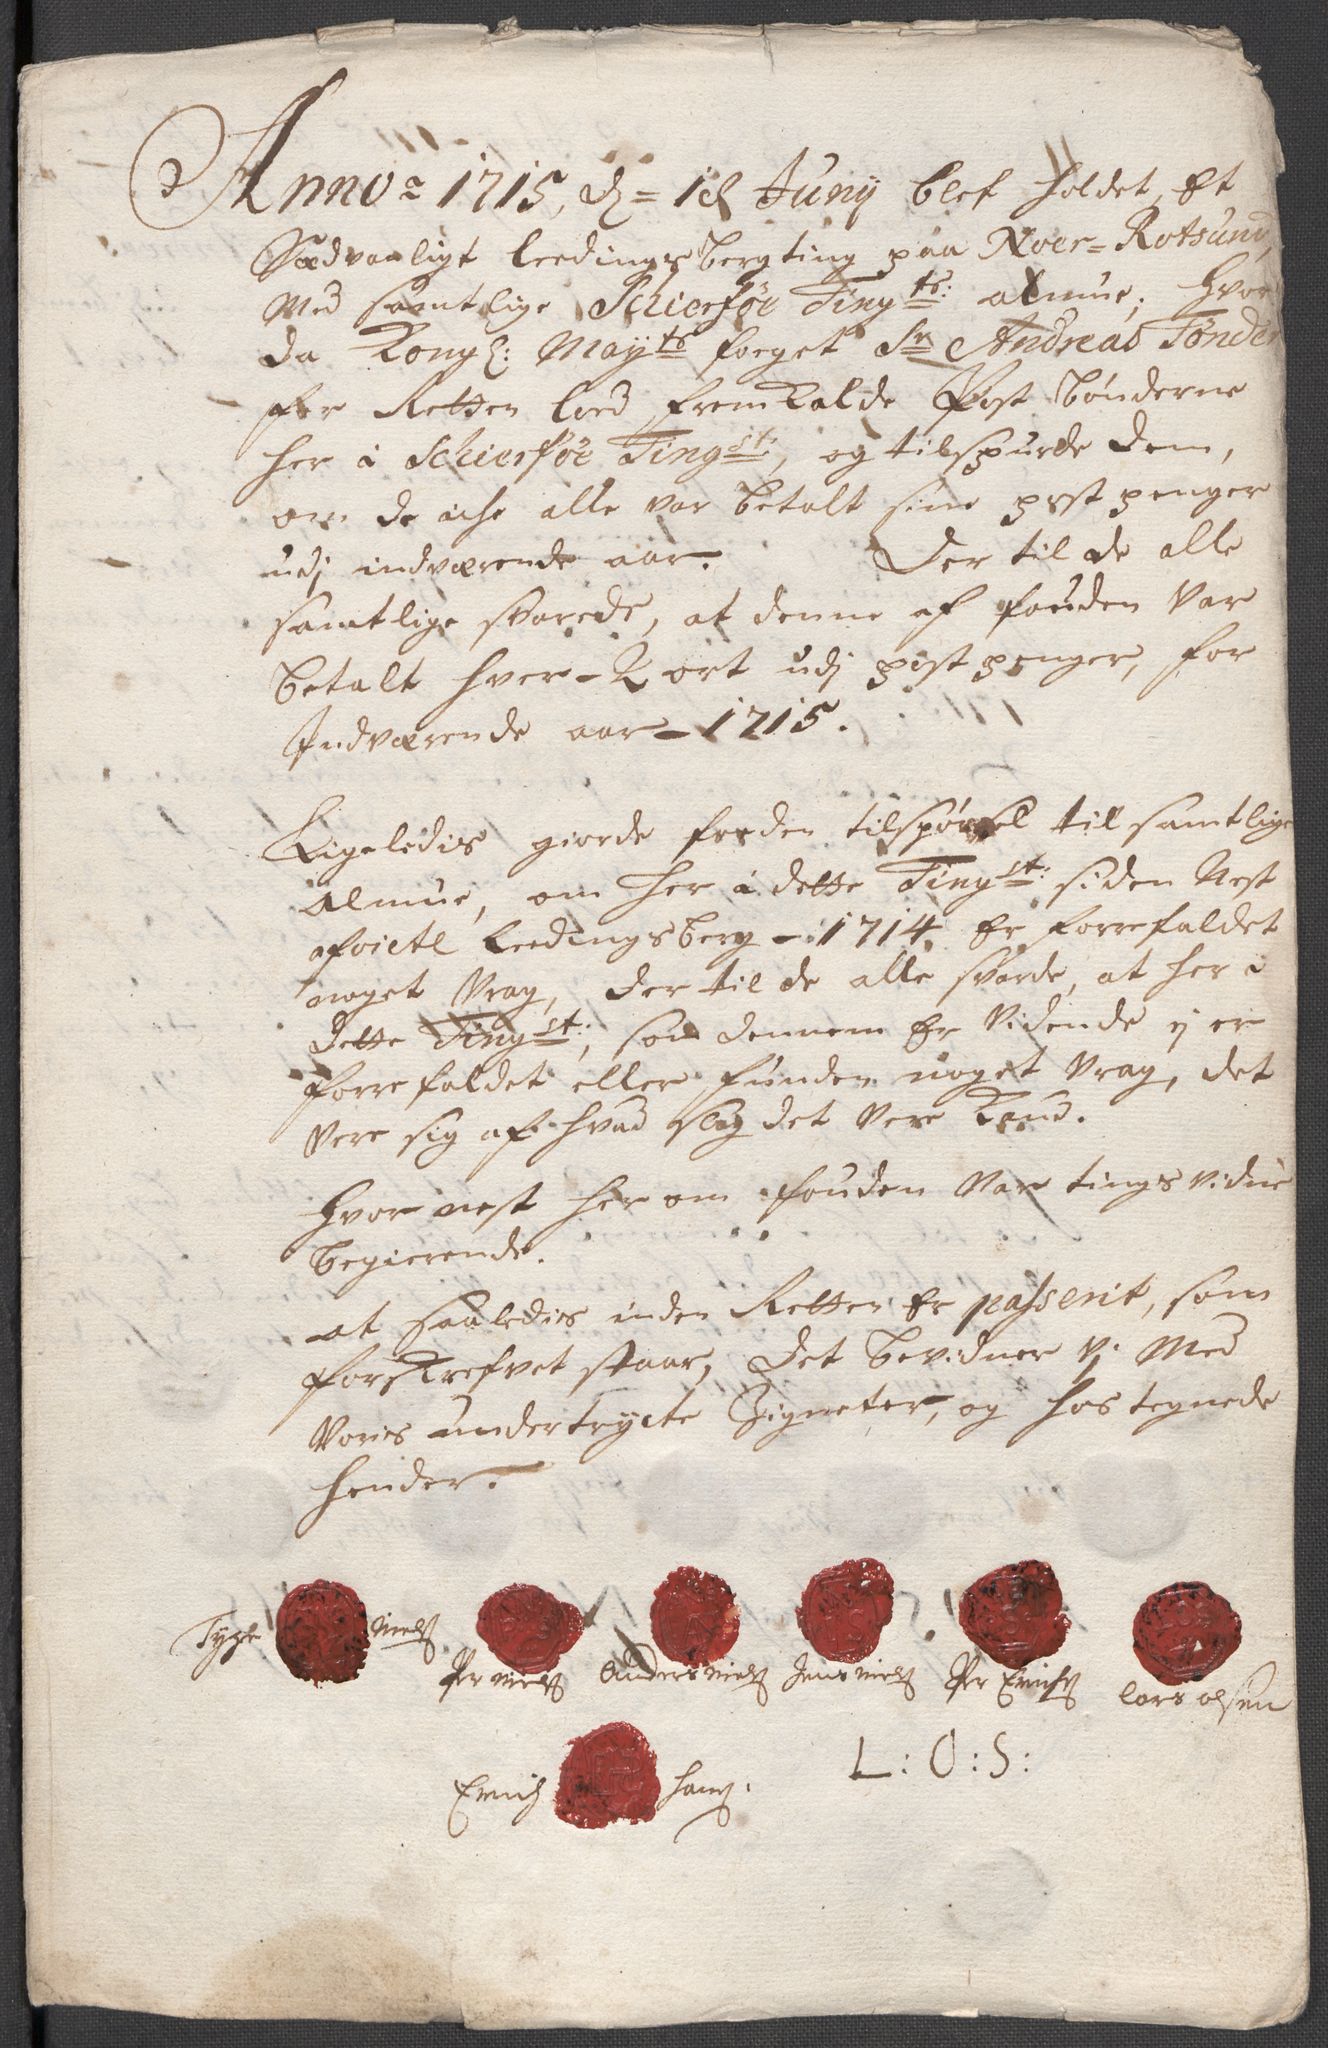 Anno 1715, d= 18 Juny blef holdet, Et
Sædvanligt Leedingsbergting paa Noer-Rotsund,
Med samtlige Schierføe Tingsts: almue; Hvor
da Kongl: Mayts foeget Sr Andreas Tønder
for Retten loed fremkalde Post bønderne
her i Schierføe Tingst:, og tilspurde dem,
om de iche alle var betalt sine post penger
udj indværende aar. Der til de alle
samtlige svarede, at denne af fouden var
betalt hver- ort udj post penger, for
Indværende aar - 1715.
Ligeledis giorde fouden tilspørsel til samtlige
Almue, om her i dette Tingst: siden Nest
afvicte Leedingsberg - 1714 Er forrefaldet
noget Vrag, der til de alle svarde, at her i
dette Tingst:, som dennem Er Vidende ej er
forrefaldet eller funden noget Vrag, det
vere sig af hvad slag det vere kand.
Hvor nest her om fouden var tings vidne
begierende.
at saaledis inden Retten Er passerit, som
forskrefvet staar, det bevidner vj Med
Voris undertrycte Zigneter, og hos tegnede
hender.
Tyge Niels
Per Niels Anders Niels Jens Niels Per Erichs Lars olsen
Erich hans.
L: O: S: